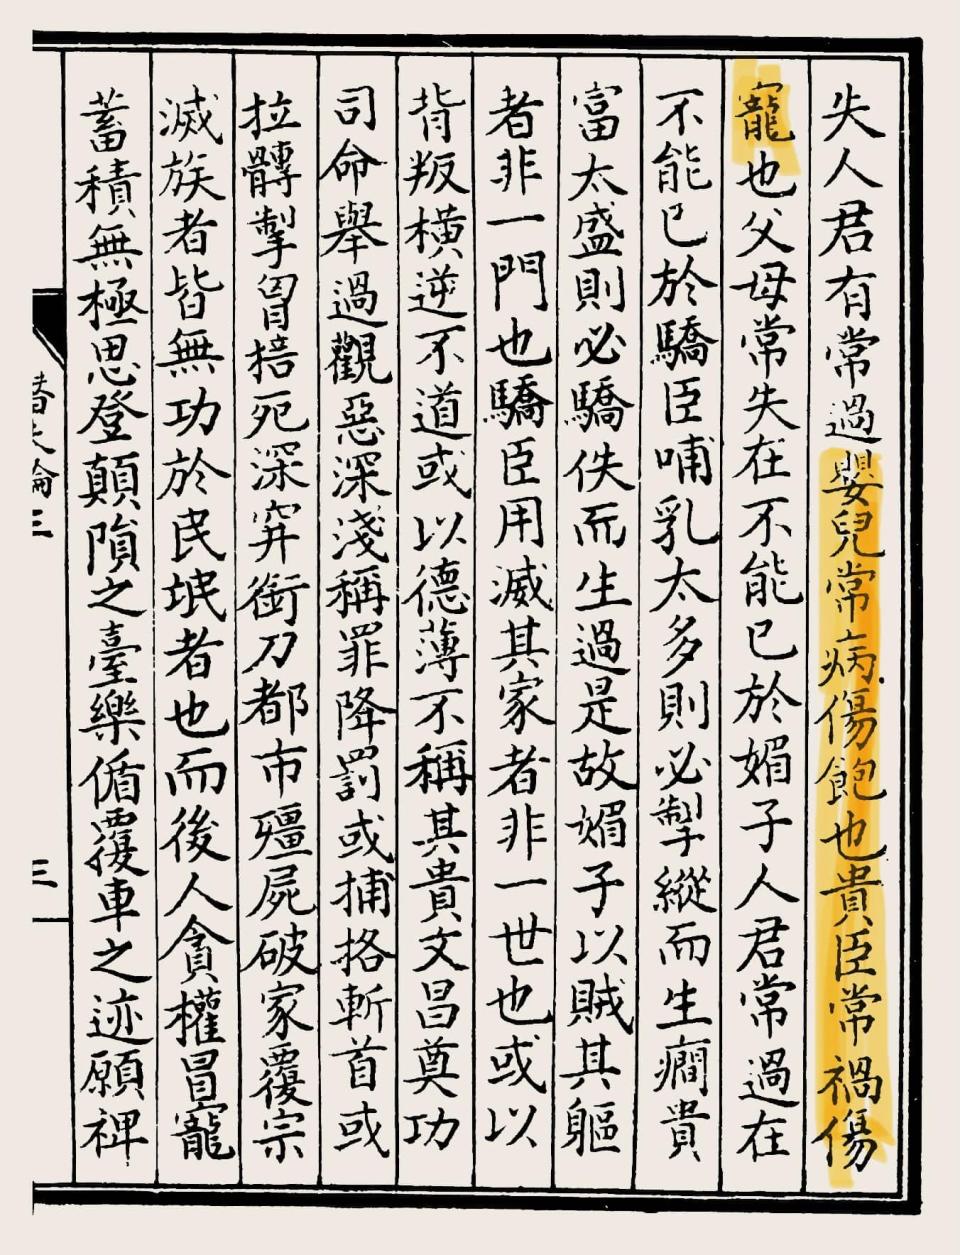 失人君有常過嬰兒常病傷飽也貴臣常禍傷
寵也父母常失在不能已於媚子人君常過在
不能已於驕臣哺乳太多則必掣縱而生癇貴
富太盛則必驕佚而生過是故媚子以賊其軀
者非一門也驕臣用滅其家者非一世也或以
背叛橫逆不道或以德薄不稱其貴文昌奠功
司命舉過觀惡深淺稱罪降罰或捕挌斬首或
拉髆掣胷掊死深穽銜刀都市殭屍破家覆宗
滅族者皆無功於民氓者也而後人貪權冒寵
蓄積無極思登顛隕之臺樂偱覆車之迹願裨
潛夫論三
三